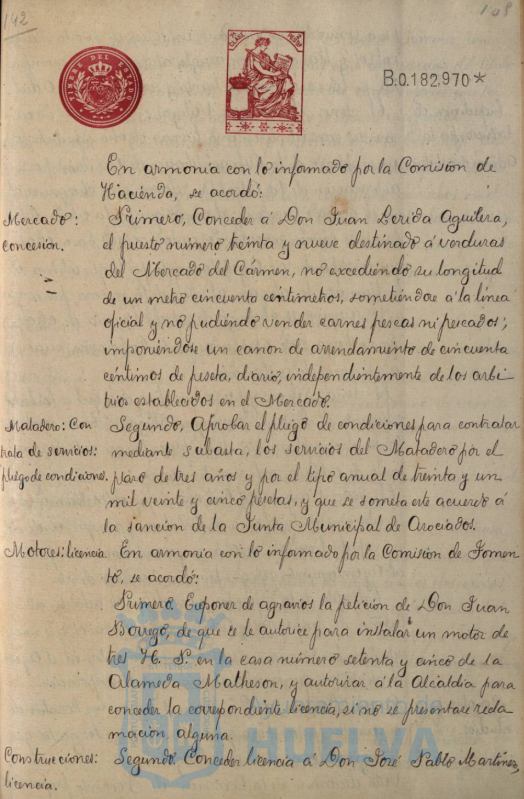 142
108
TIMBRE DEL ESTADO
B.0.182,970*
En armonía con lo informado por la Comisión de
Hacienda, se acordó:
Mercado: Primero, Conceder á Don Juan Lerida Aguilera,
concesión. el puesto número treinta y nueve destinado á verduras
del Mercado del Cármen, no excediendo su longitud
de un metro cincuenta centímetros, sometiéndose á la línea
oficial y no pudiendo vender carnes frescas ni pescados;
imponiéndose un canon de arrendamiento de cincuenta
céntimos de peseta, diario, independientemente de los arbi
trios establecidos en el Mercado.
Matadero: Con Segundo, Aprobar el pliego de condiciones para contratar
trata de servicios: mediante subasta, los servicios del Matadero por el
pliego de condiciones. plazo de tres años y por el tipo anual de treinta y un
mil veinte y cinco pesetas, y que se someta este acuerdo á
la sanción de la Junta Municipal de Asociados.
Motores: licencia. En armonía con lo informado por la Comisión de Fomen
to, se acordó:
Primero. Exponer de agravios la petición de Don Juan
Borrego, de que se le autorice para instalar un motor de
tres H. P. en la casa número setenta y cinco de la
Alameda Matheson, y autorizar á la Alcaldía para
conceder la correspondiente licencia, si no se presentare recla
mación alguna.
HUELVA
Construcciones: Segundo. Conceder licencia á Don José Pablo Martínez,
licencia.